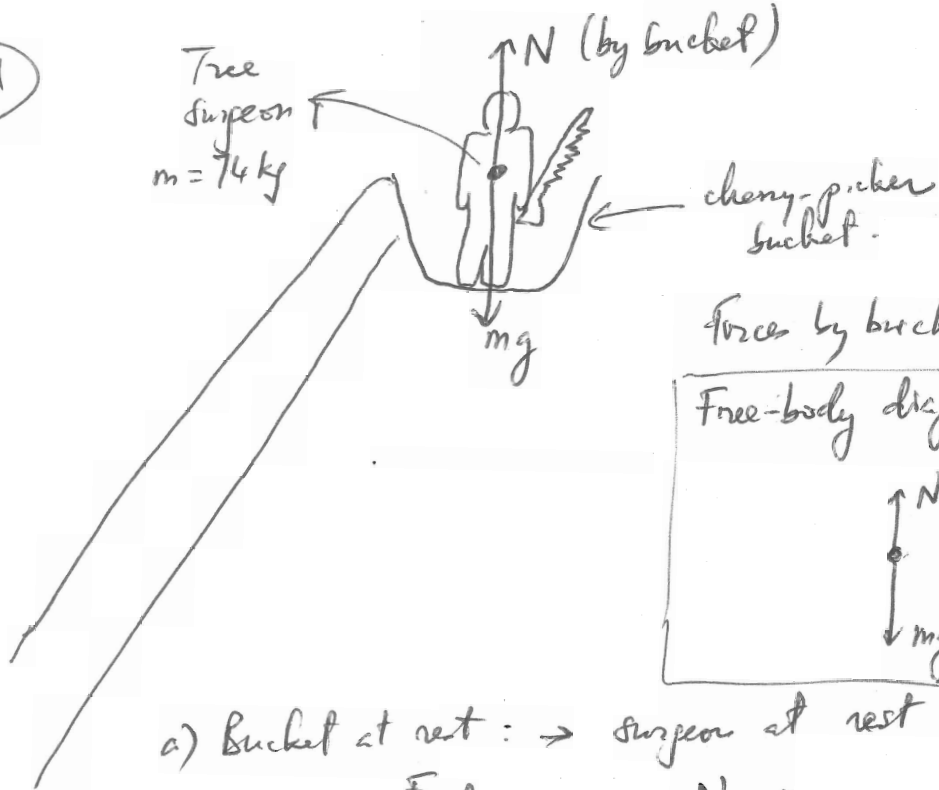 Tree
surgeon
m = 74 kg
N (by bucket)
cherry-picker
bucket.
mg
Forces by buck
Free-body diag
N
mg
a) Bucket at rest : → surgeon at rest
N